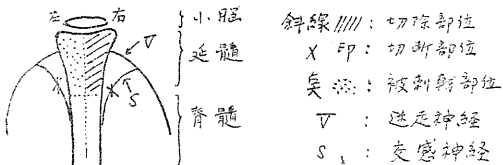 左 右
小脳
延髄
脊髄
V
S
X X
斜線 ///// : 切除部位
X 印 : 切断部位
点 : 被刺戟部位
V : 迷走神経
S : 交感神経